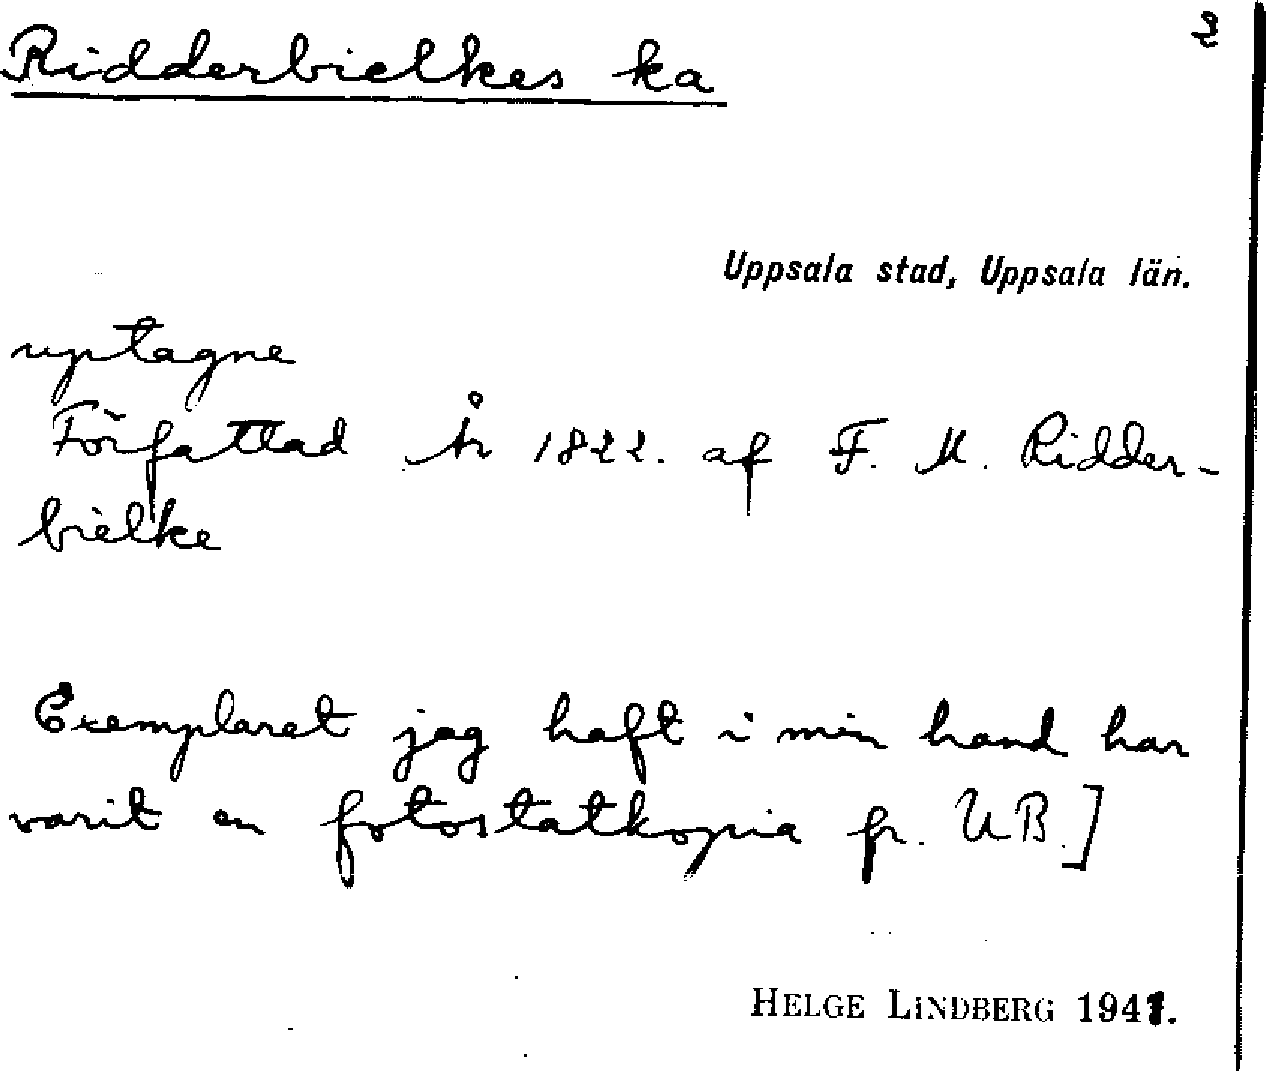 2
Ridderbielkes ka
Uppsala stad, Uppsala län.
uptagne
Författad År 1822. af F. M. Ridder-
bielke
Exemplaret jag haft i min hand har
varit en fotostatkopia fr. UB.]
HELGE LINDBERG 1941.